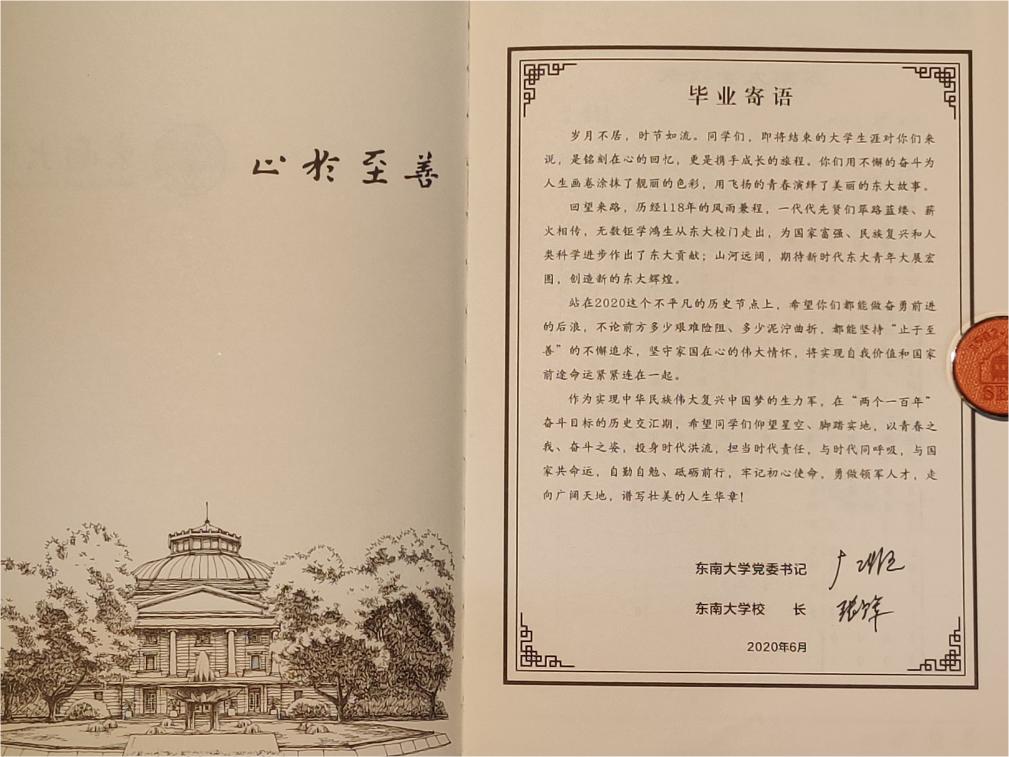 止於至善
毕业寄语
岁月不居，时节如流。同学们，即将结束的大学生涯对你们来
说，是铭刻在心的回忆，更是携手成长的旅程。你们用不懈的奋斗为
人生画卷涂抹了靓丽的色彩，用飞扬的青春演绎了美丽的东大故事。
回望来路，历经118年的风雨兼程，一代代先贤们筚路蓝缕、薪
火相传，无数钜学鸿生从东大校门走出，为国家富强、民族复兴和人
类科学进步作出了东大贡献；山河远阔，期待新时代东大青年大展宏
图，创造新的东大辉煌。
站在2020这个不平凡的历史节点上，希望你们都能做奋勇前进
的后浪，不论前方多少艰难险阻、多少泥泞曲折，都能坚持“止于至
善”的不懈追求，坚守家国在心的伟大情怀，将实现自我价值和国家
前途命运紧紧连在一起。
作为实现中华民族伟大复兴中国梦的生力军，在“两个一百年”
奋斗目标的历史交汇期，希望同学们仰望星空、脚踏实地，以青春之
我、奋斗之姿，投身时代洪流，担当时代责任，与时代同呼吸，与国
家共命运，自勤自勉、砥砺前行，牢记初心使命，勇做领军人才，走
向广阔天地，谱写壮美的人生华章！
东南大学党委书记
东南大学校 长
2020年6月